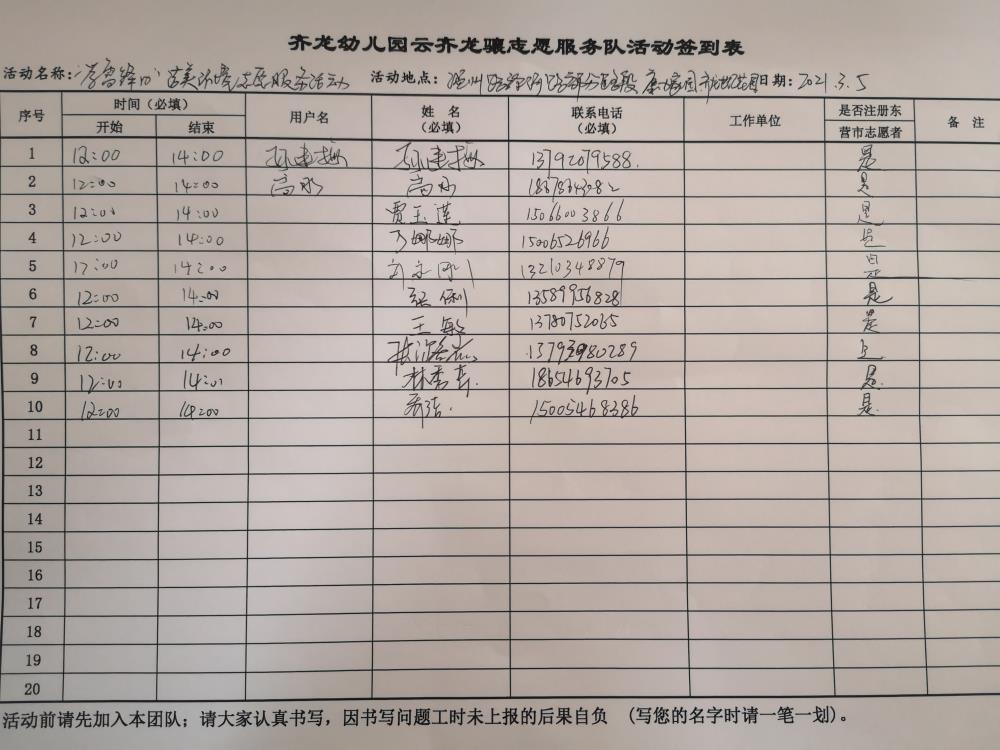 齐龙幼儿园云齐龙骧志愿服务队活动签到表
活动名称：“学雷锋 美环境志愿服务活动 活动地点： 日期：2021.3.5
序号 时间（必填） 用户名 姓名（必填） 联系电话（必填） 工作单位 是否注册东营市志愿者 备注
开始 结束
1 12:00 14:00 13792079588. 是
2 12:00 14:00 高永 高永 是
3 12:00 14:00 贾玉莲 15066003866 是
4 12:00 14:00 娜娜 15006526966 是
5 12:00 14:00 13210348879 是
6 12:00 14:00 张俐 13589956828 是
7 12:00 14:00 王敏 13780752065 是
8 12:00 14:00 是
9 12:00 14:00 林秀 18654693705 是
10 12:00 14:00 15005468386 是
11
12
13
14
15
16
17
18
19
20
活动前请先加入本团队；请大家认真书写，因书写问题工时未上报的后果自负 （写您的名字时请一笔一划）。